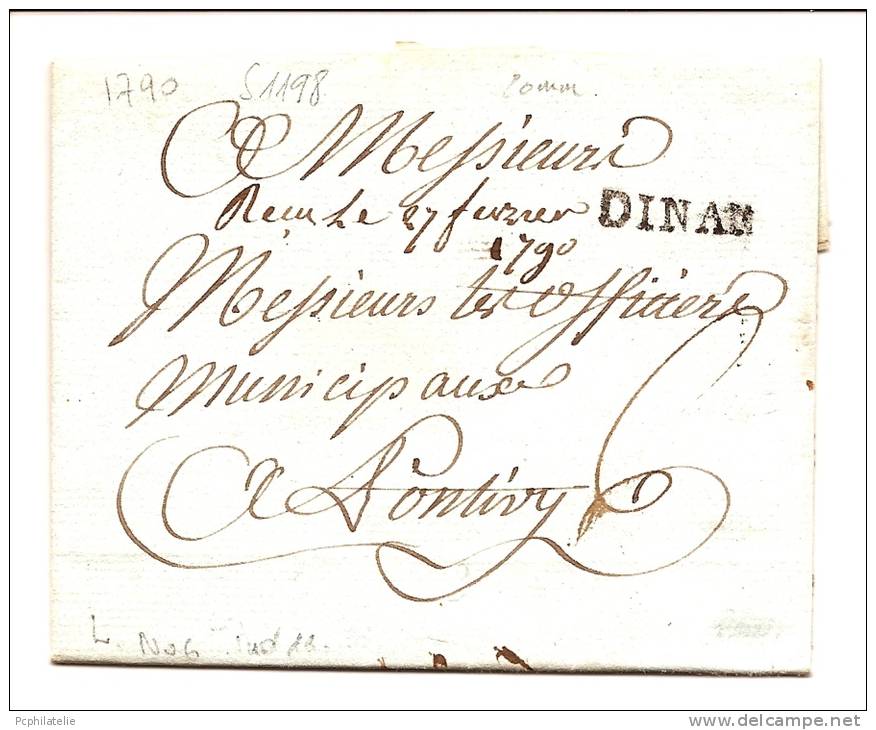 1790 S1198 20mm.
A Messieurs
Reçu Le 27 fevrier DINAN
1790
Messieurs les Officiers
Municipaux
6
A Pontivy
L. No 6
Pcphilatelie
www.delcampe.net